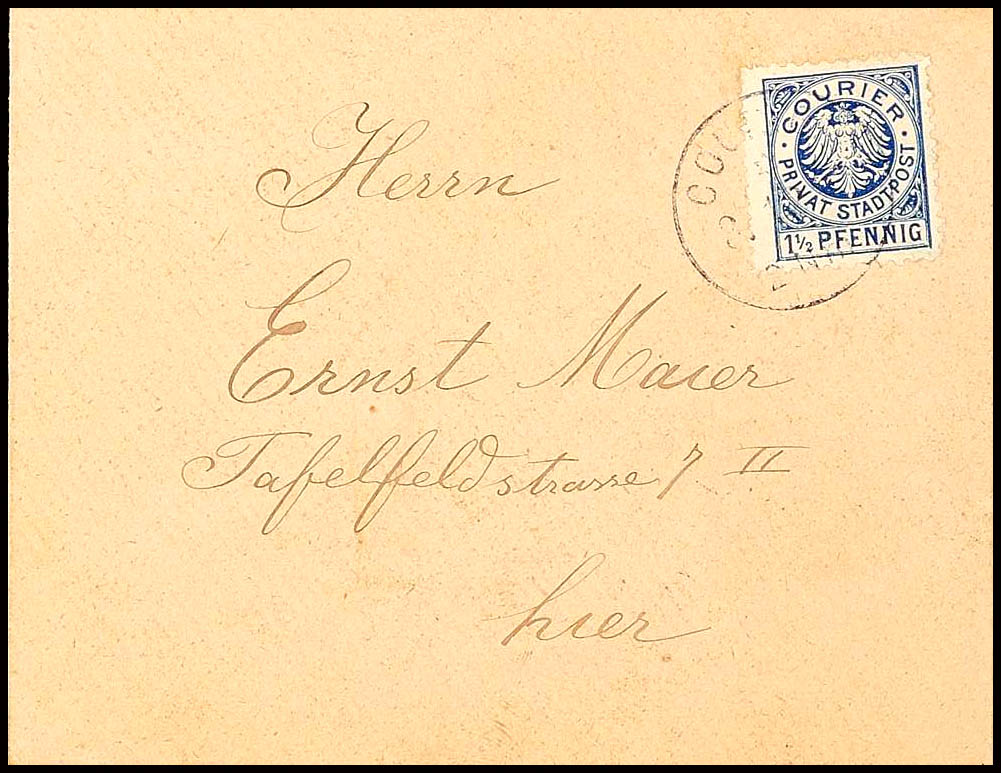 COURIER
PRIVAT STADTPOST
1½ PFENNIG
Herrn
Ernst Maier
Tafelfeldstrasse 7 II
hier